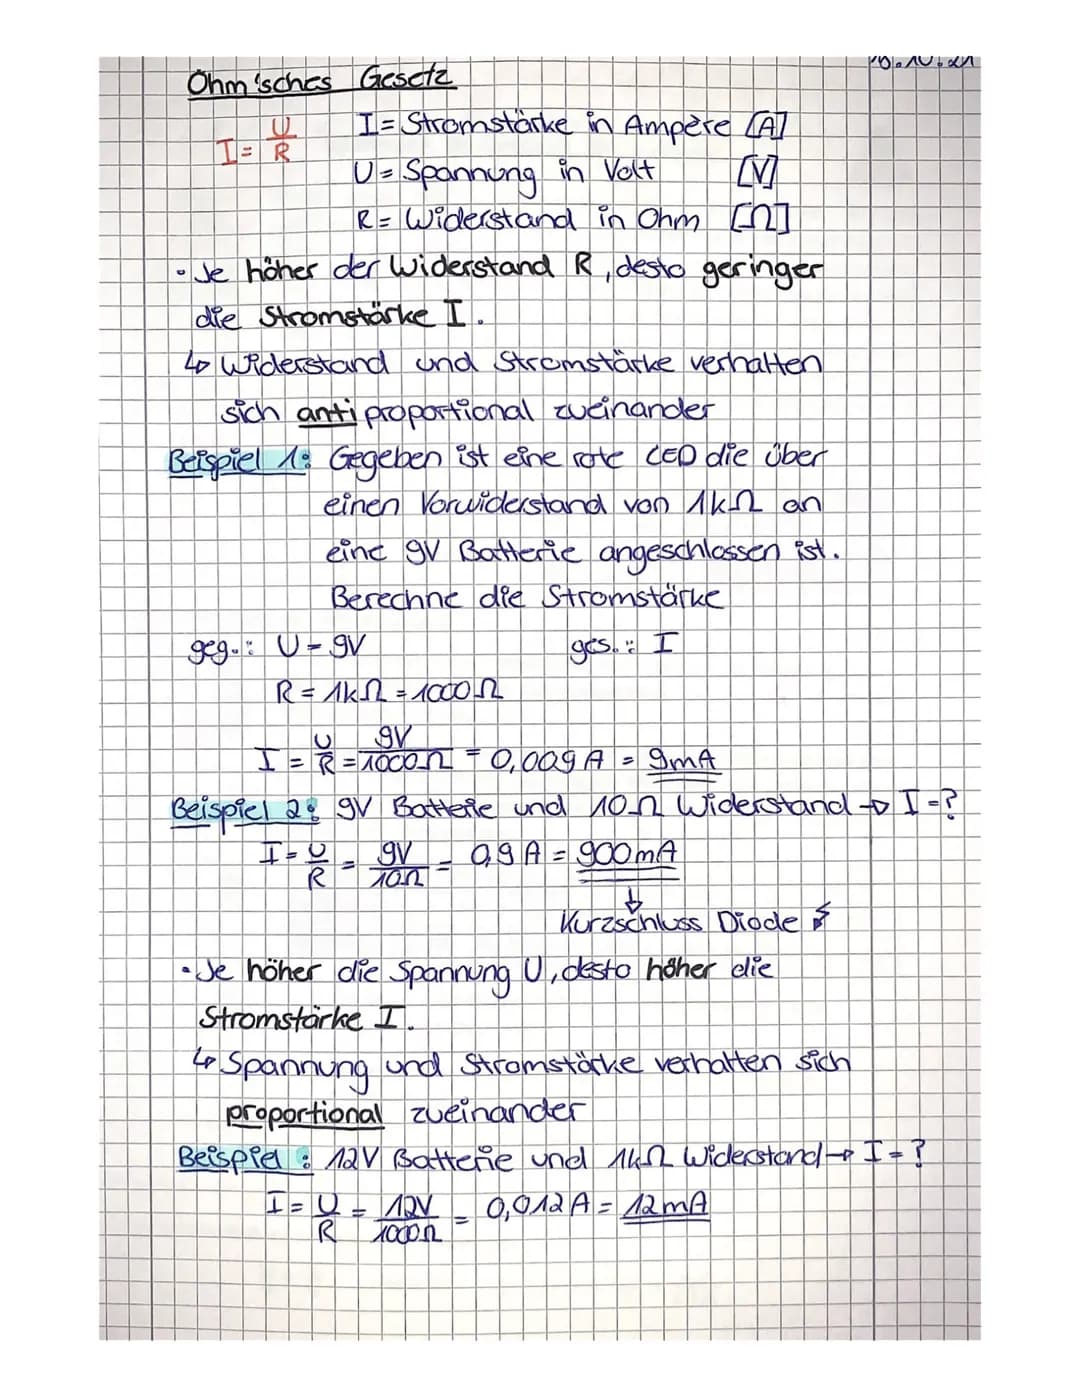 Ohm'sches Gesetz
I = U/R
I = Stromstärke in Ampère [A]
U = Spannung in Volt [V]
R = Widerstand in Ohm [Ω]
• Je höher der Widerstand R, desto geringer
die Stromstärke I.
↳ Widerstand und Stromstärke verhalten
sich antiproportional zueinander
Beispiel 1: Gegeben ist eine rote LED die über
einen Vorwiderstand von 1kΩ an
eine 9V Batterie angeschlossen ist.
Berechne die Stromstärke
geg.: U = 9V ges.: I
R = 1kΩ = 1000Ω
I = U/R = 9V/1000Ω = 0,009A = 9mA
Beispiel 2: 9V Batterie und 10Ω Widerstand → I = ?
I = U/R = 9V/10Ω = 0,9A = 900mA
↓
Kurzschluss Diode ↯
• Je höher die Spannung U, desto höher die
Stromstärke I.
↳ Spannung und Stromstärke verhalten sich
proportional zueinander
Beispiel: 12V Batterie und 1kΩ Widerstand → I = ?
I = U/R = 12V/1000Ω = 0,012A = 12mA